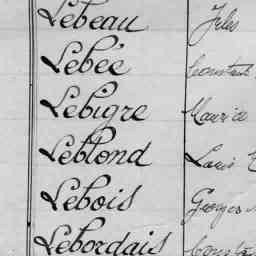 Lebeau Jules
Lebée
Lebigre Maurice
Leblond Louis
Lebois Georges
Lebordais